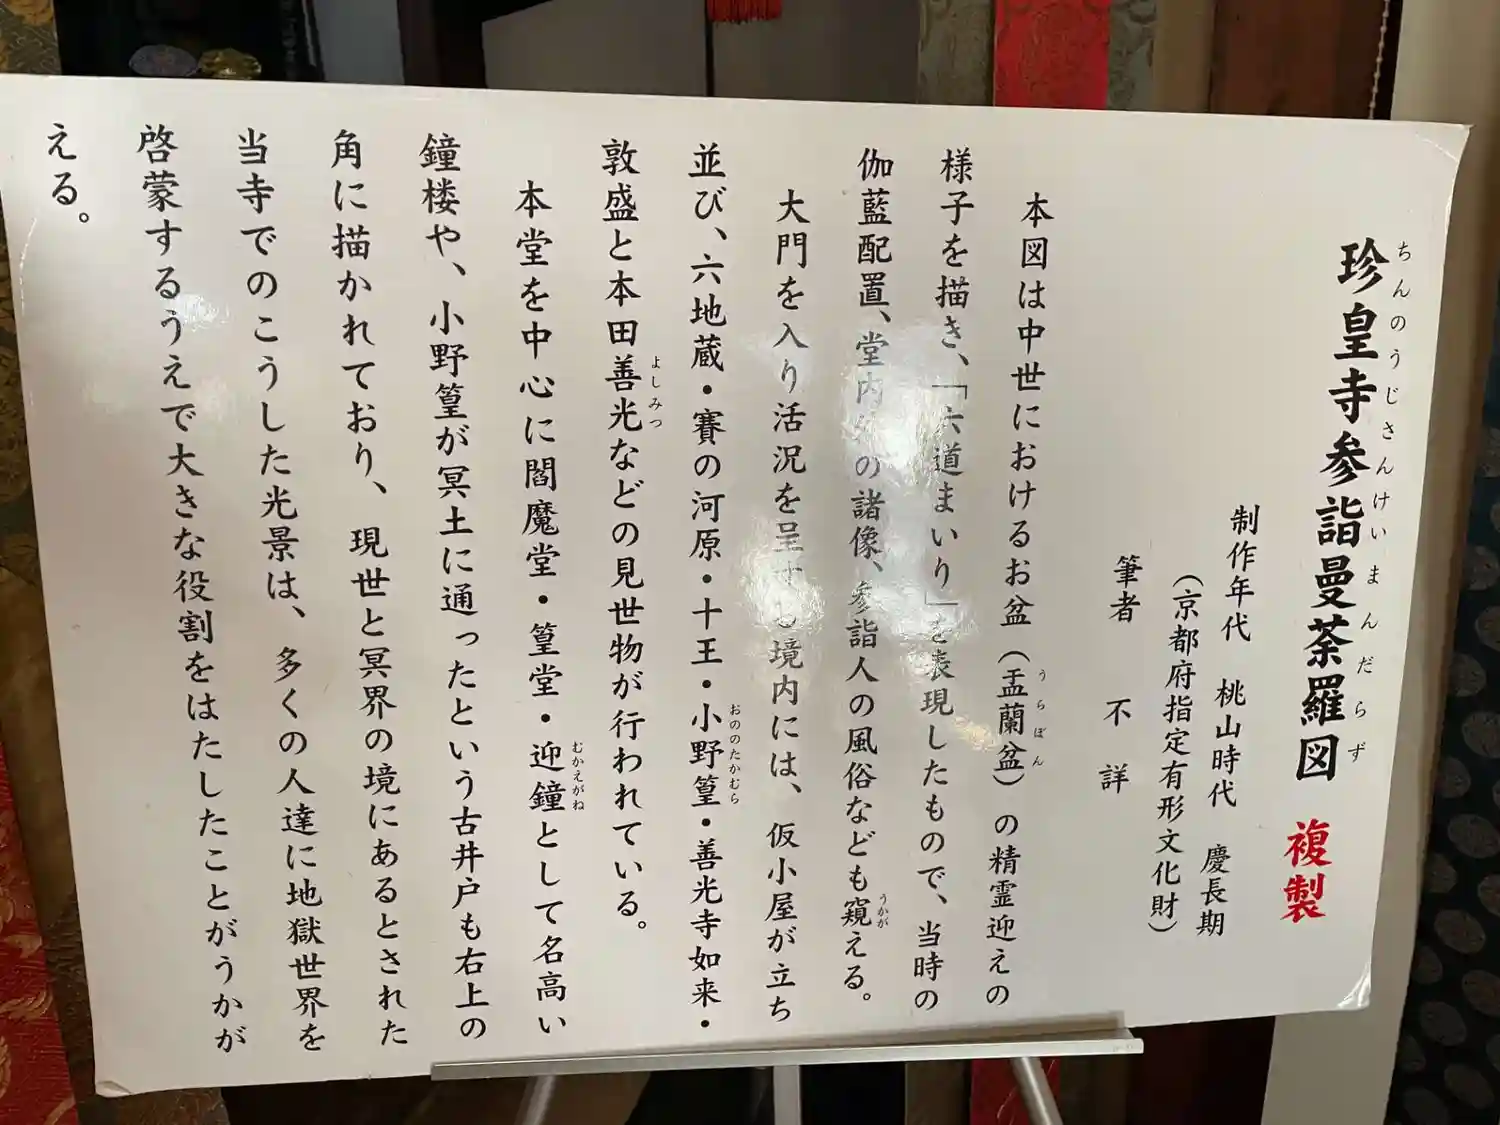 珍皇寺参詣曼荼羅図 複製
ちんのうじさんけいまんだらず
制作年代 桃山時代 慶長期
(京都府指定有形文化財)
筆者 不詳
本図は中世におけるお盆(盂蘭盆)の精霊迎えの
うらぼん
様子を描き、「六道まいり」を表現したもので、当時の
伽藍配置、堂内外の諸像、参詣人の風俗なども窺える。
うかが
大門を入り活況を呈する境内には、仮小屋が立ち
並び、六地蔵・賽の河原・十王・小野篁・善光寺如来・
おののたかむら
敦盛と本田善光などの見世物が行われている。
よしみつ
本堂を中心に閻魔堂・篁堂・迎鐘として名高い
むかえがね
鐘楼や、小野篁が冥土に通ったという古井戸も右上の
角に描かれており、現世と冥界の境にあるとされた
当寺でのこうした光景は、多くの人達に地獄世界を
啓蒙するうえで大きな役割をはたしたことがうかが
える。